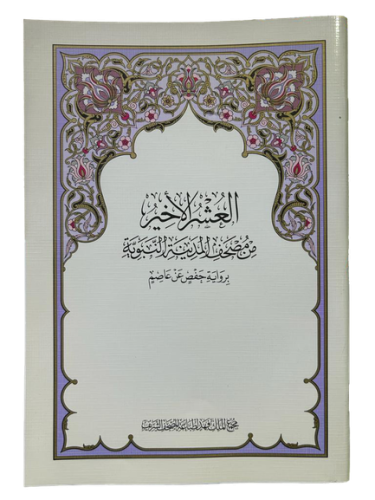 العُشْرُ الأَخِيرُ
مِنْ مُصْحَفِ المَدِينَةِ النَّبَوِيَّةِ
بِرِوَايَةِ حَفْصٍ عَنْ عَاصِمٍ
مجمع الملك فهد لطباعة المصحف الشريف